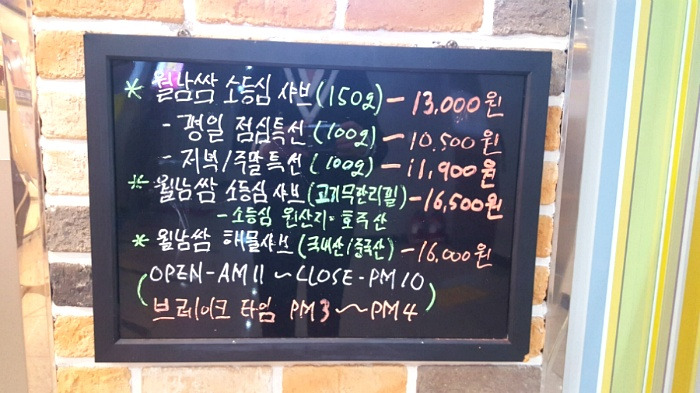 * 월남쌈 소등심 샤브(150g) - 13,000원
- 평일 점심특선 (100g) - 10,500원
- 저녁/주말특선 (100g) - 11,900원
* 월남쌈 소등심 샤브(고기무한리필) - 16,500원
- 소등심 원산지: 호주산
* 월남쌈 해물샤브 (국내산/중국산) - 16,000원
(OPEN-AM11 ~ CLOSE-PM10
브레이크 타임 PM3 ~ PM4)